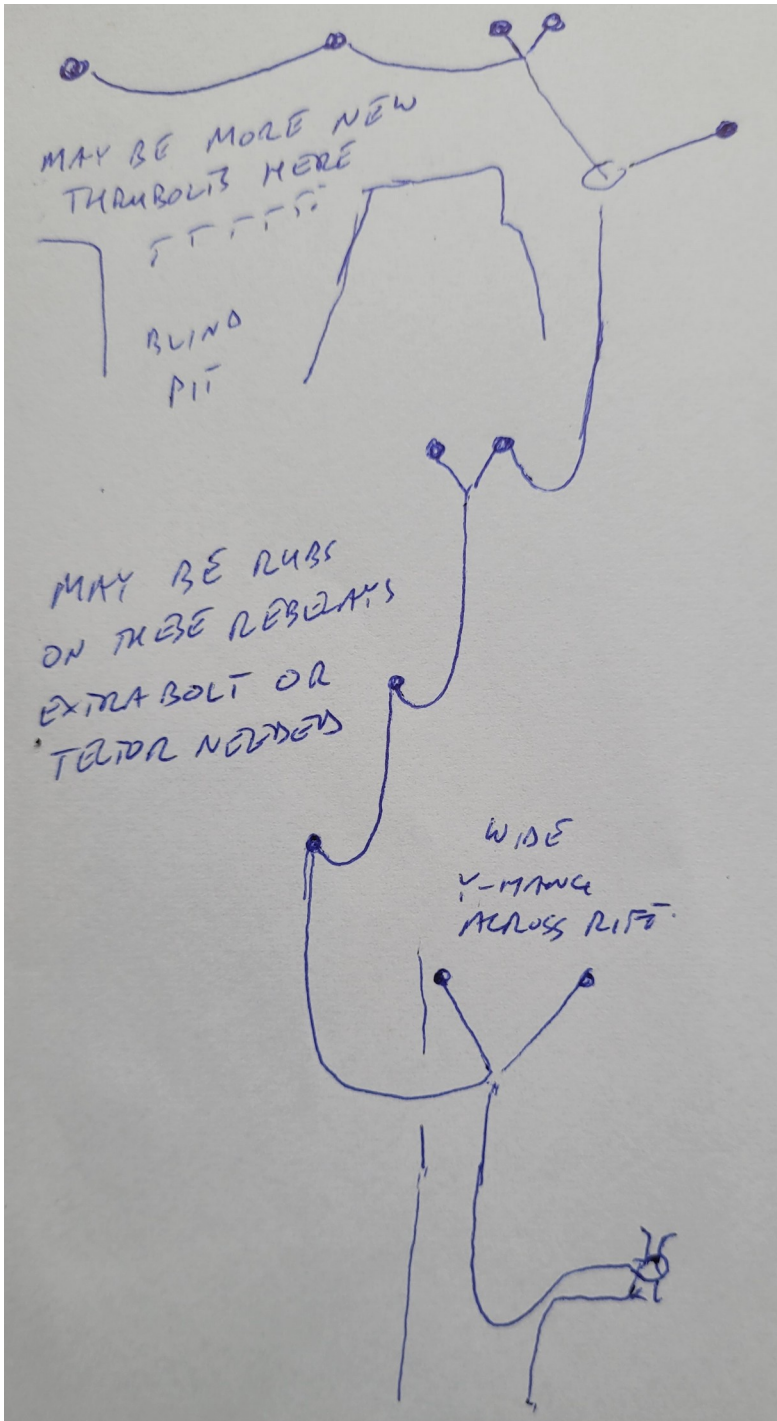 MAY BE MORE NEW
THRUBOLTS HERE
BLIND
PIT
MAY BE RUBS
ON THESE REBELAYS
EXTRA BOLT OR
TECTOR NEEDED
WIDE
Y-HANG
ACROSS RIFT.